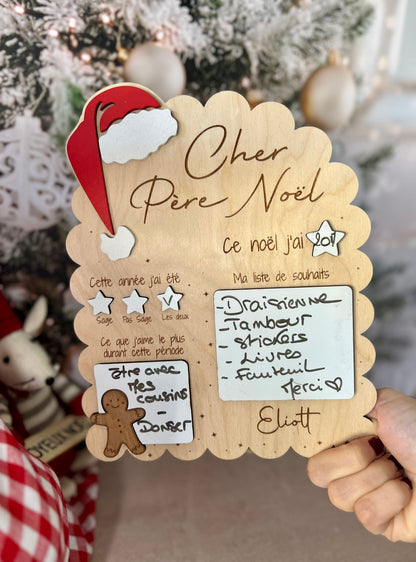 Cher
Père Noël
Ce noël j'ai
Cette année j'ai été
Sage Pas Sage Les deux
Ma liste de souhaits
- Draisienne
- Tambour
- stickers
- Livres
- Fauteuil
Merci
Ce que j'aime le plus
durant cette période
être avec
mes
cousins
-
Danser
Eliott